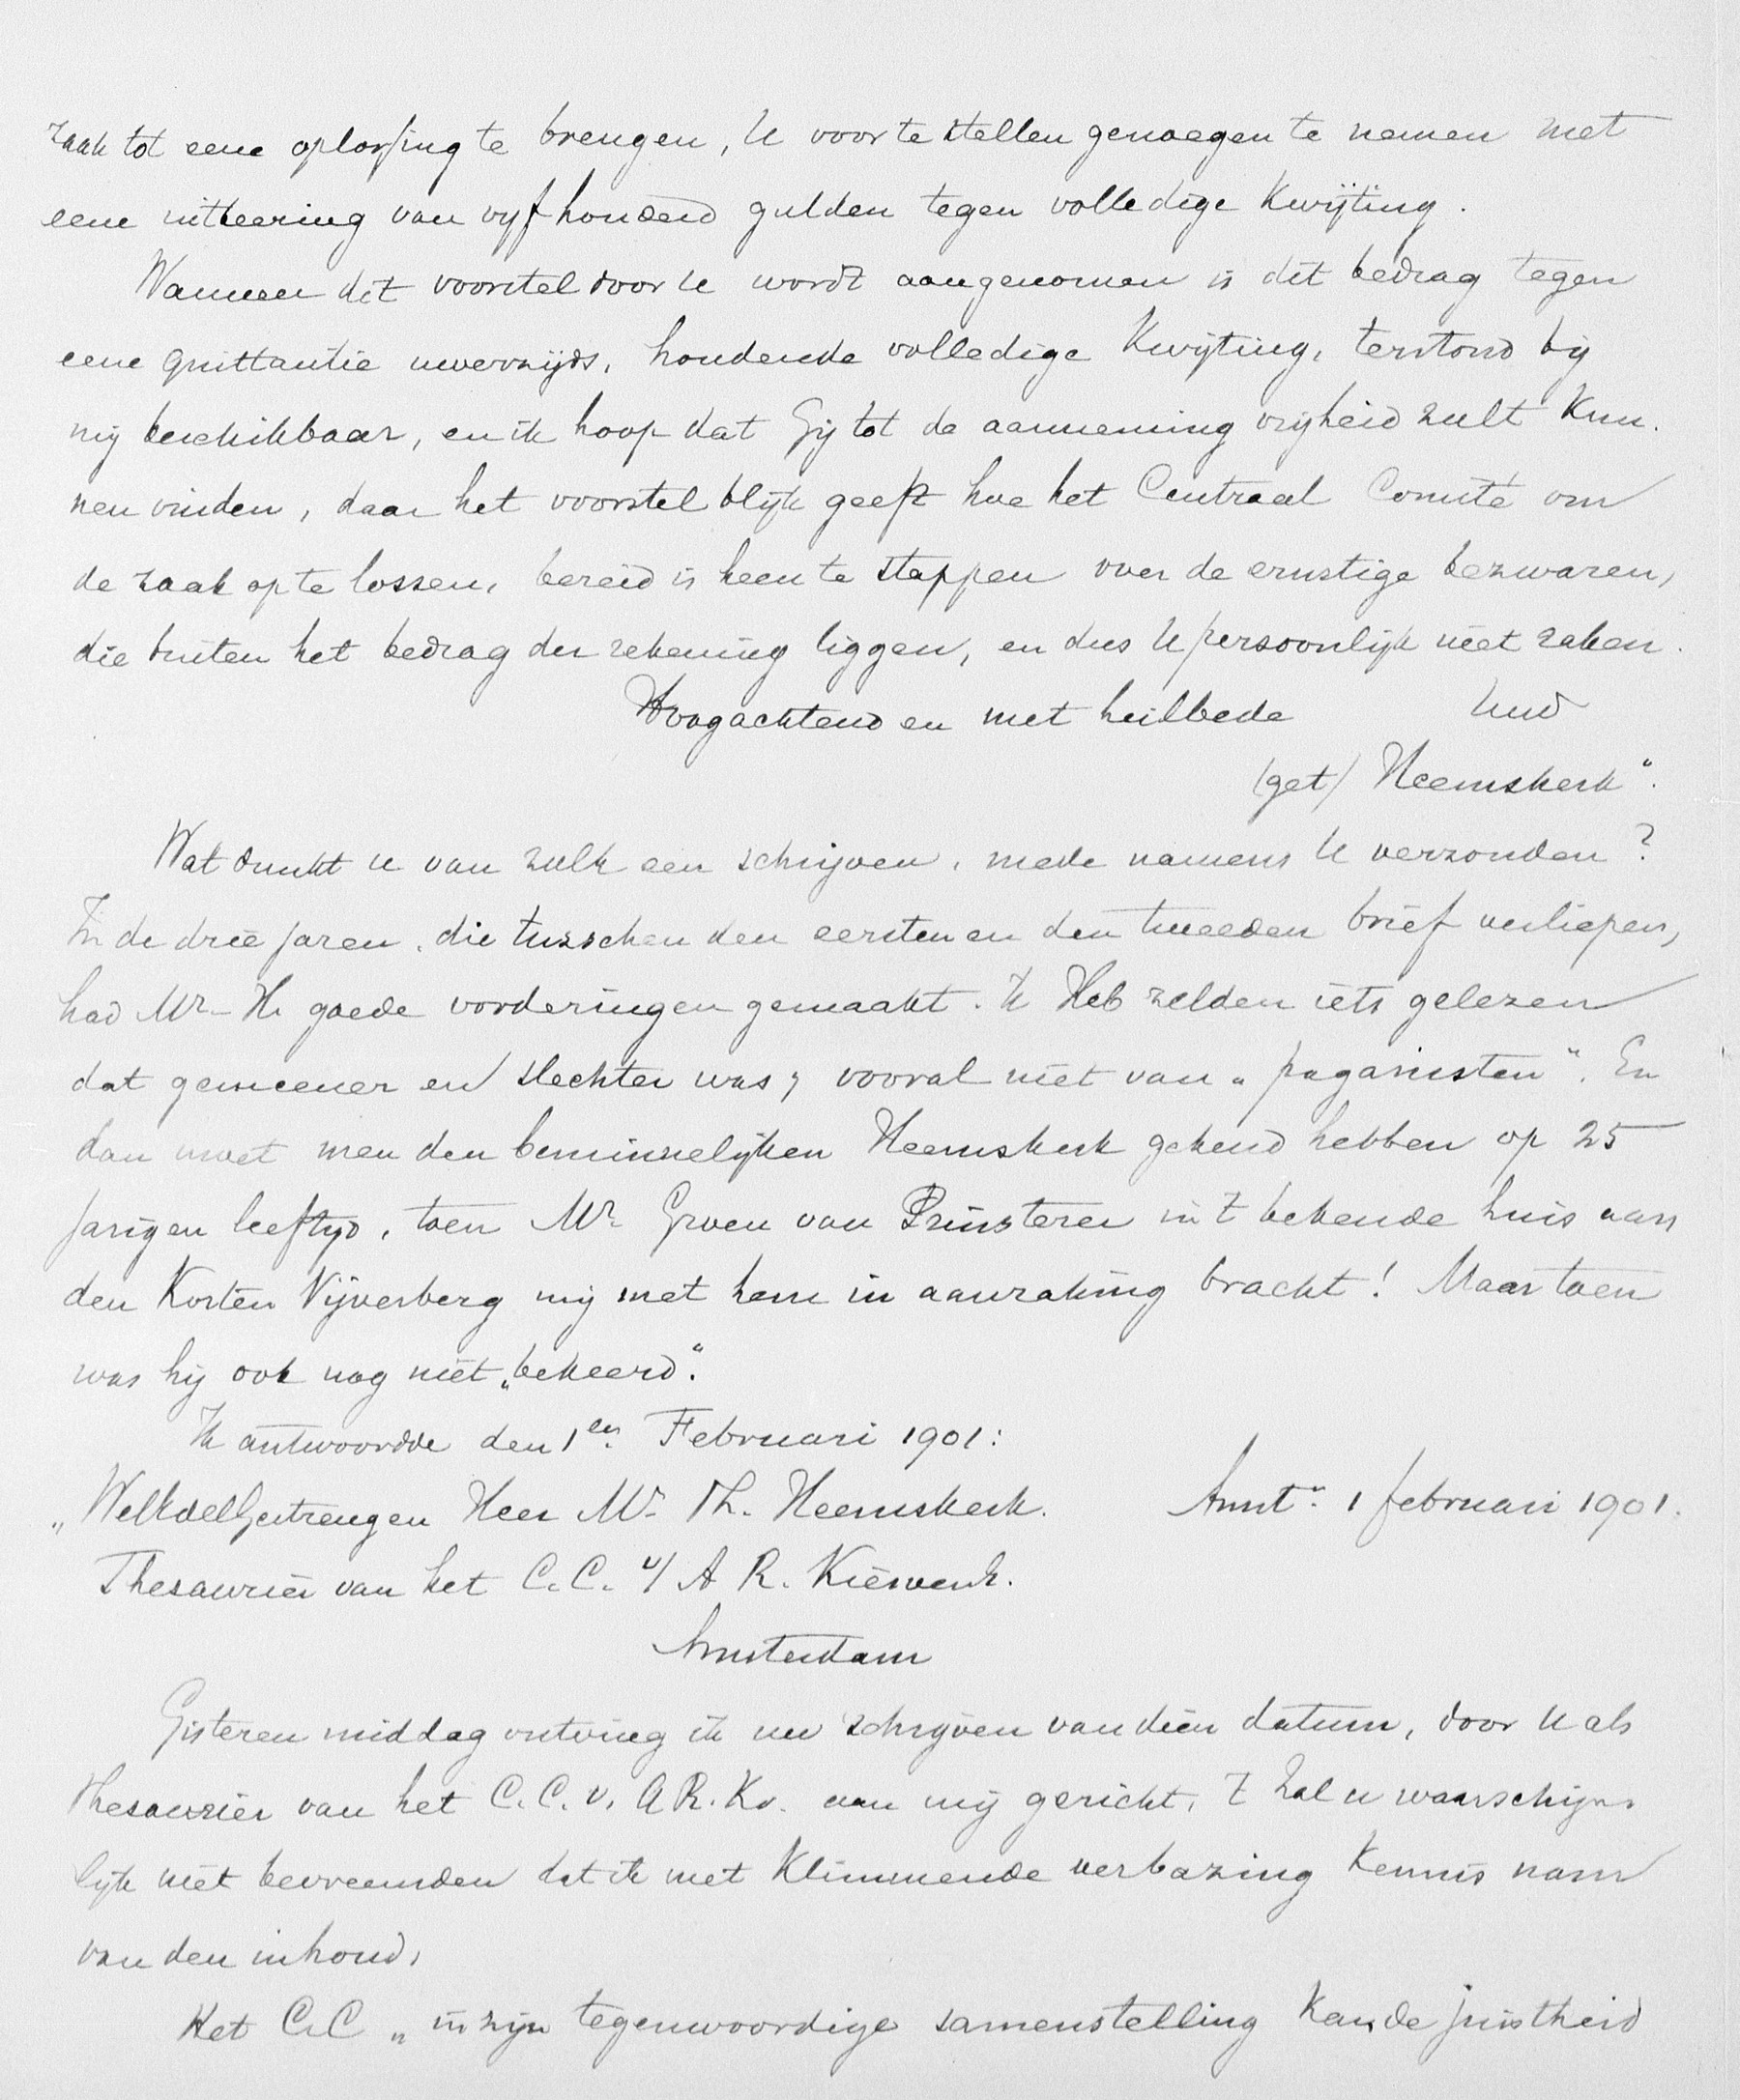 zaak tot eene oplossing te brengen, U voor te stellen genoegen te nemen met
eene uitkeering van vyfhonderd gulden tegen volledige Kwijting.
Wanneer dit voorstel door U wordt aangenomen is dit bedrag tegen
eene quittantie uwerzijds, houdende volledige Kwijting, terstond bij
mij beschikbaar, en ik hoop dat Gij tot de aanneming vrijheid zult Kun-
nen vinden, daar het voorstel blijk geeft hoe het Centraal Comité om
de zaak op te lossen, bereid is heen te stappen over de ernstige bezwaren,
die buiten het bedrag der rekening liggen, en dus U persoonlijk niet raken.
Hoogachtend en met heilbede Uwd
(get) Heemskerk".
Wat dunkt u van zulk een schrijven, mede namens U verzonden?
In de drie jaren, die tusschen den eersten en den tweeden brief verliepen,
had Mr. H. goede vorderingen gemaakt. Ik Heb zelden iets gelezen
dat gemeener en slechter was, vooral niet van "paganisten". En
dan moet men den beminnelijken Heemskerk gekend hebben op 25
jarigen leeftijd, toen Mr. Groen van Prinsterer in 't bekende huis aan
den Korten Vijverberg mij met hem in aanraking bracht! Maar toen
was hij ook nog niet „bekeerd".
Ik antwoordde den 1en Februari 1901:
„WelEdelGestrengen Heer Mr. Th. Heemskerk. Amst. 1 februari 1901.
Thesaurier van het C.C. v/ A R. Kiesvenh.
Amsterdam
Gisteren middag ontving ik uw schrijven van dien datum, door U als
Thesaurier van het C.C. v. A R. Kv. aan mij gericht, 't Zal u waarschijn-
lijk niet bevreemden dat ik met Klimmende verbazing Kennis nam
van den inhoud,
Het C.C „in zijn tegenwoordige samenstelling Kan de juistheid